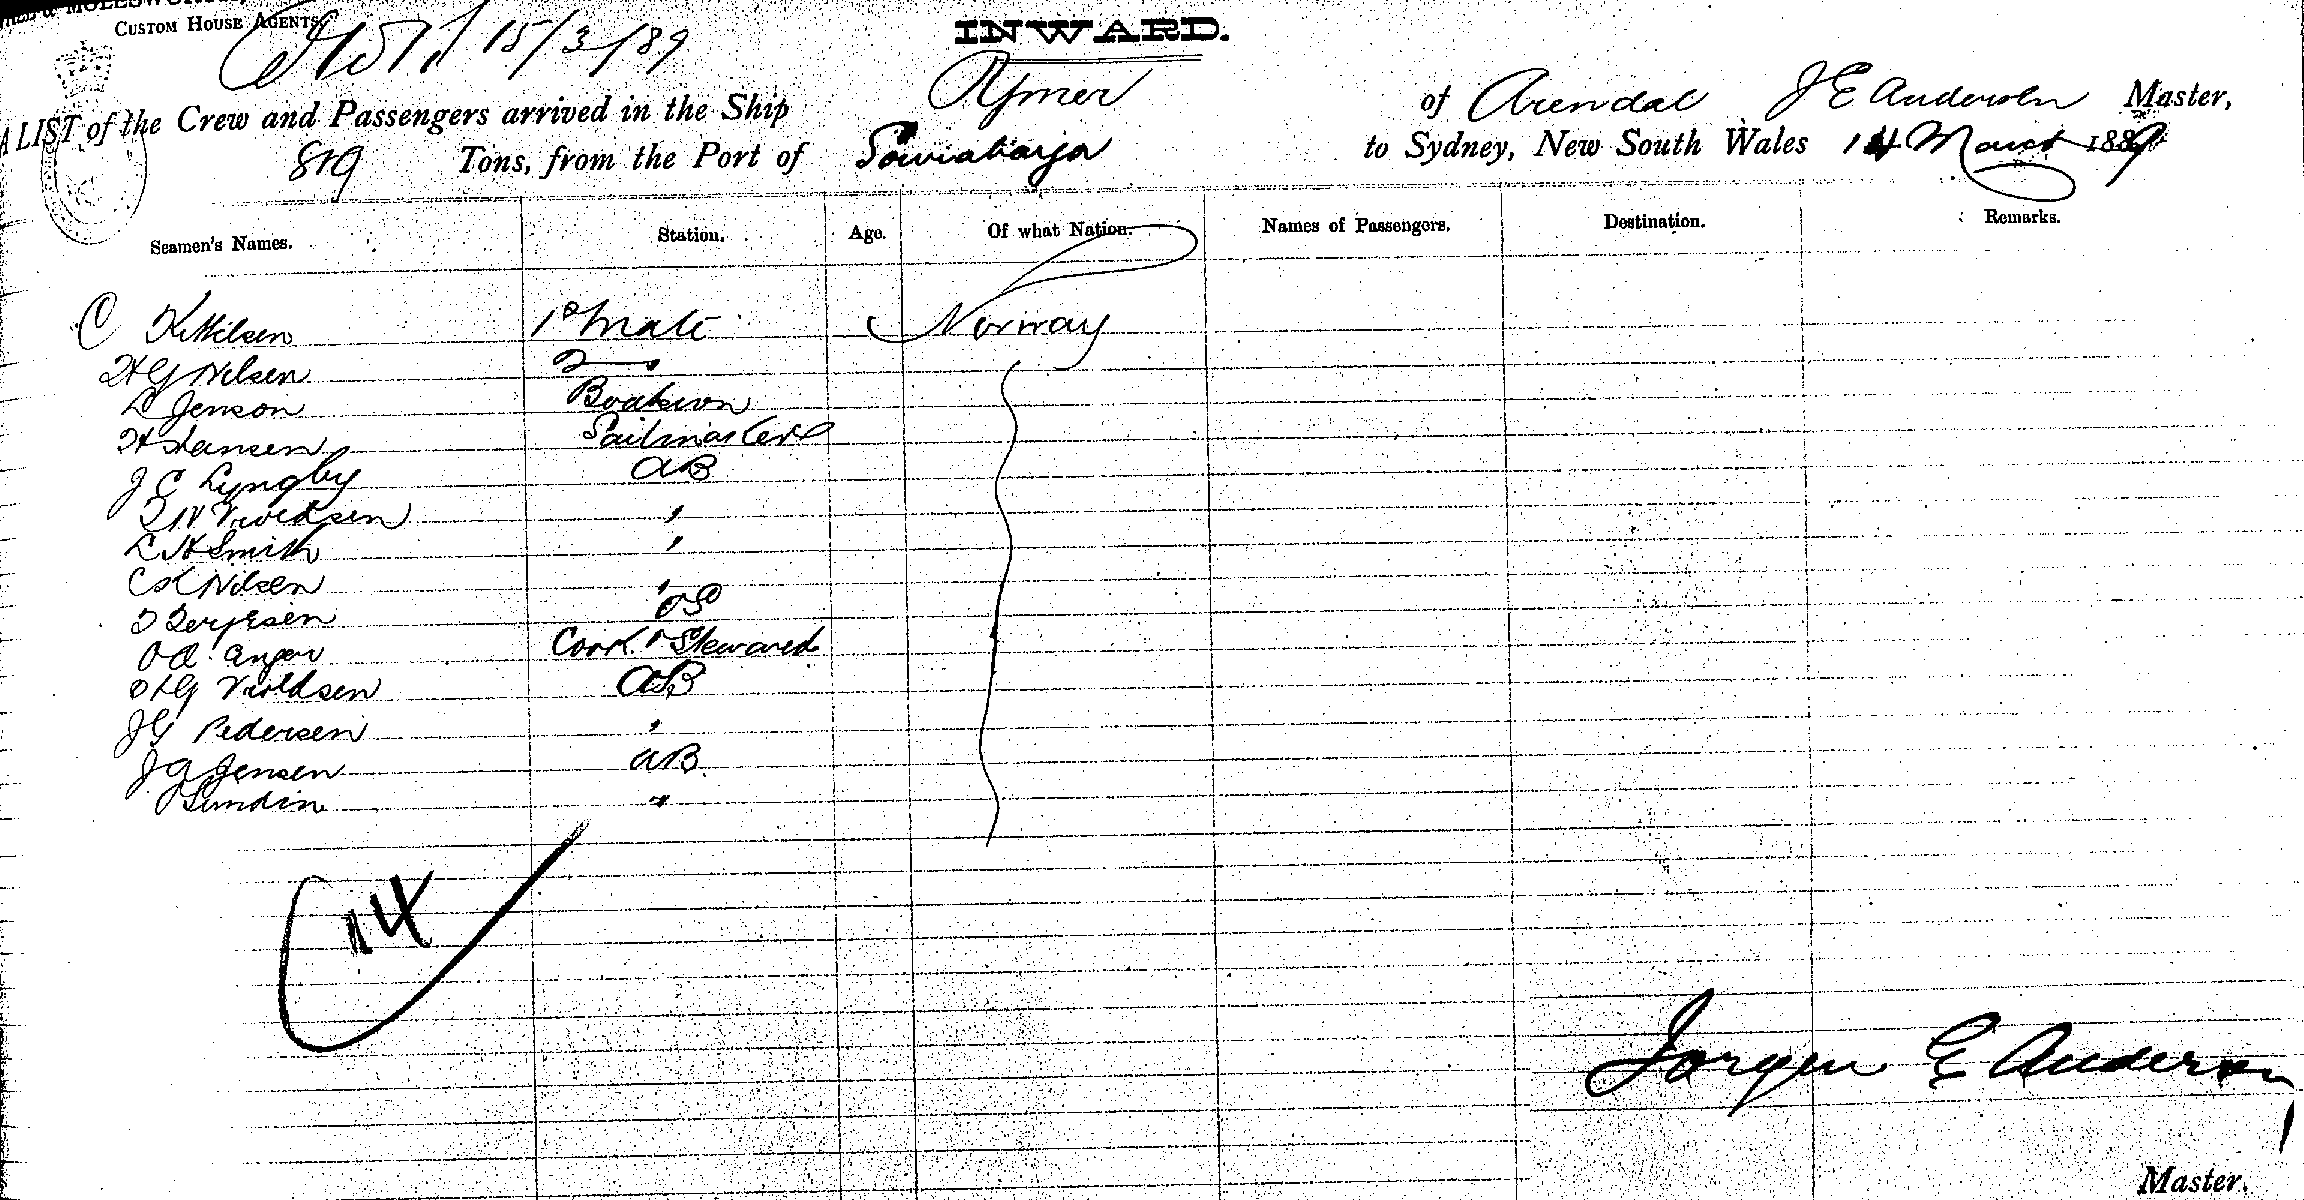 CUSTOM HOUSE AGENTS
15/3/89
INWARD.
A LIST of the Crew and Passengers arrived in the Ship Rymer of Arendal J E Andersen Master,
819 Tons, from the Port of Sourabaija to Sydney, New South Wales 14 March 1889
Seamen's Names. Station. Age. Of what Nation. Names of Passengers. Destination. Remarks.
C Kittilsen 1º Mate Norway
H G Nilsen 2 "
L Jenson
H Hansen Sailmaker
J C Lyngby AB
"
L H Smith "
C K Nilsen "
D Terjesen OS
O A Cook & Steward
AB
J G Pedersen "
J G Jensen AB.
Sundin "
14
Jorgen E Andersen
Master.